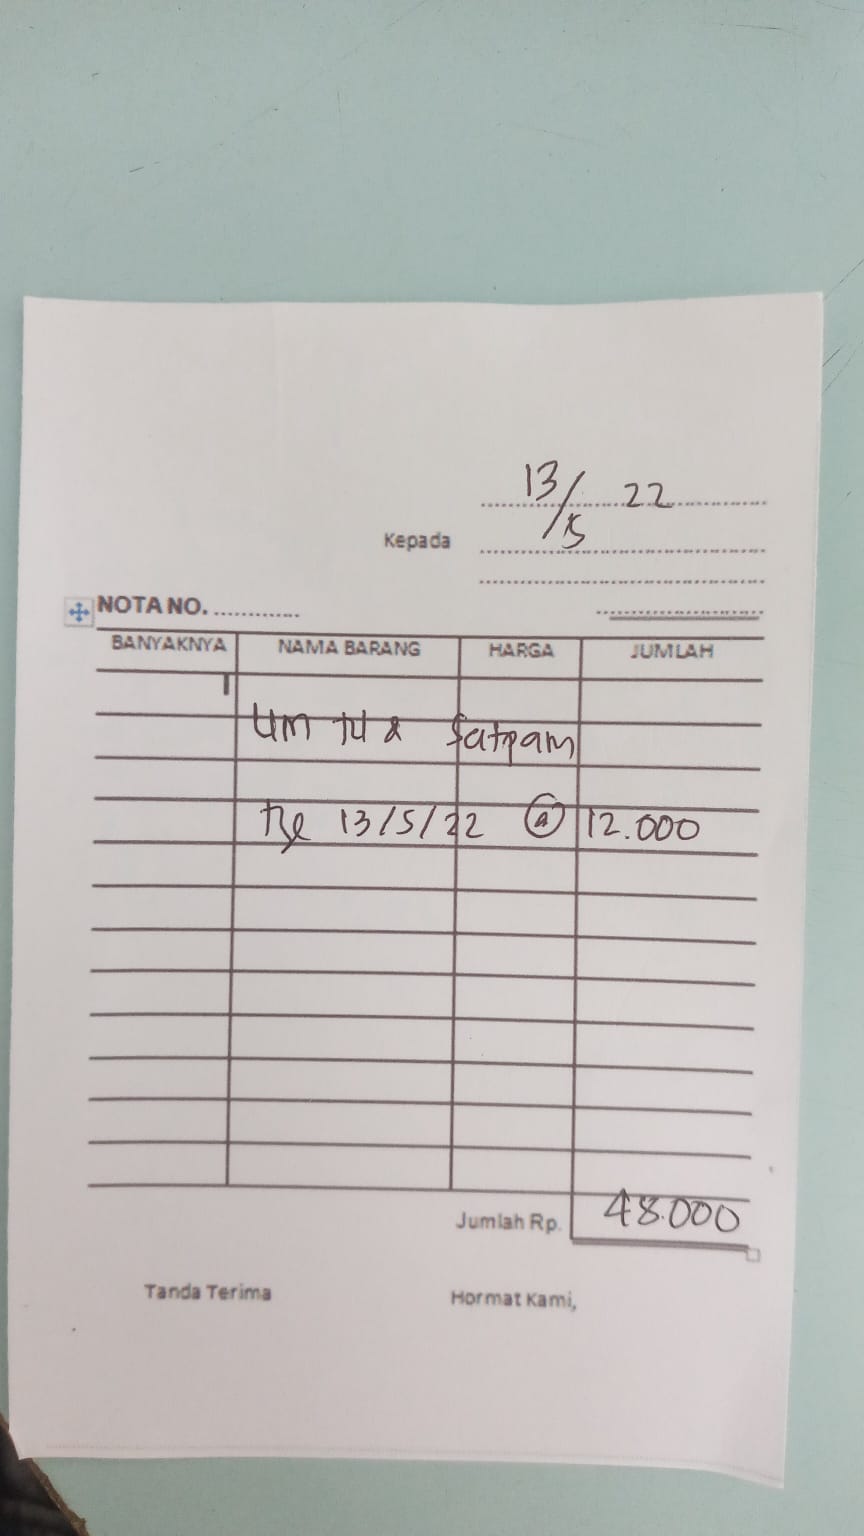 13/5 22
Kepada
NOTA NO. .............
BANYAKNYA NAMA BARANG HARGA JUMLAH
UM TU & Satpam
13/5/22 @ 12.000
Jumlah Rp. 48.000
Tanda Terima Hormat Kami,